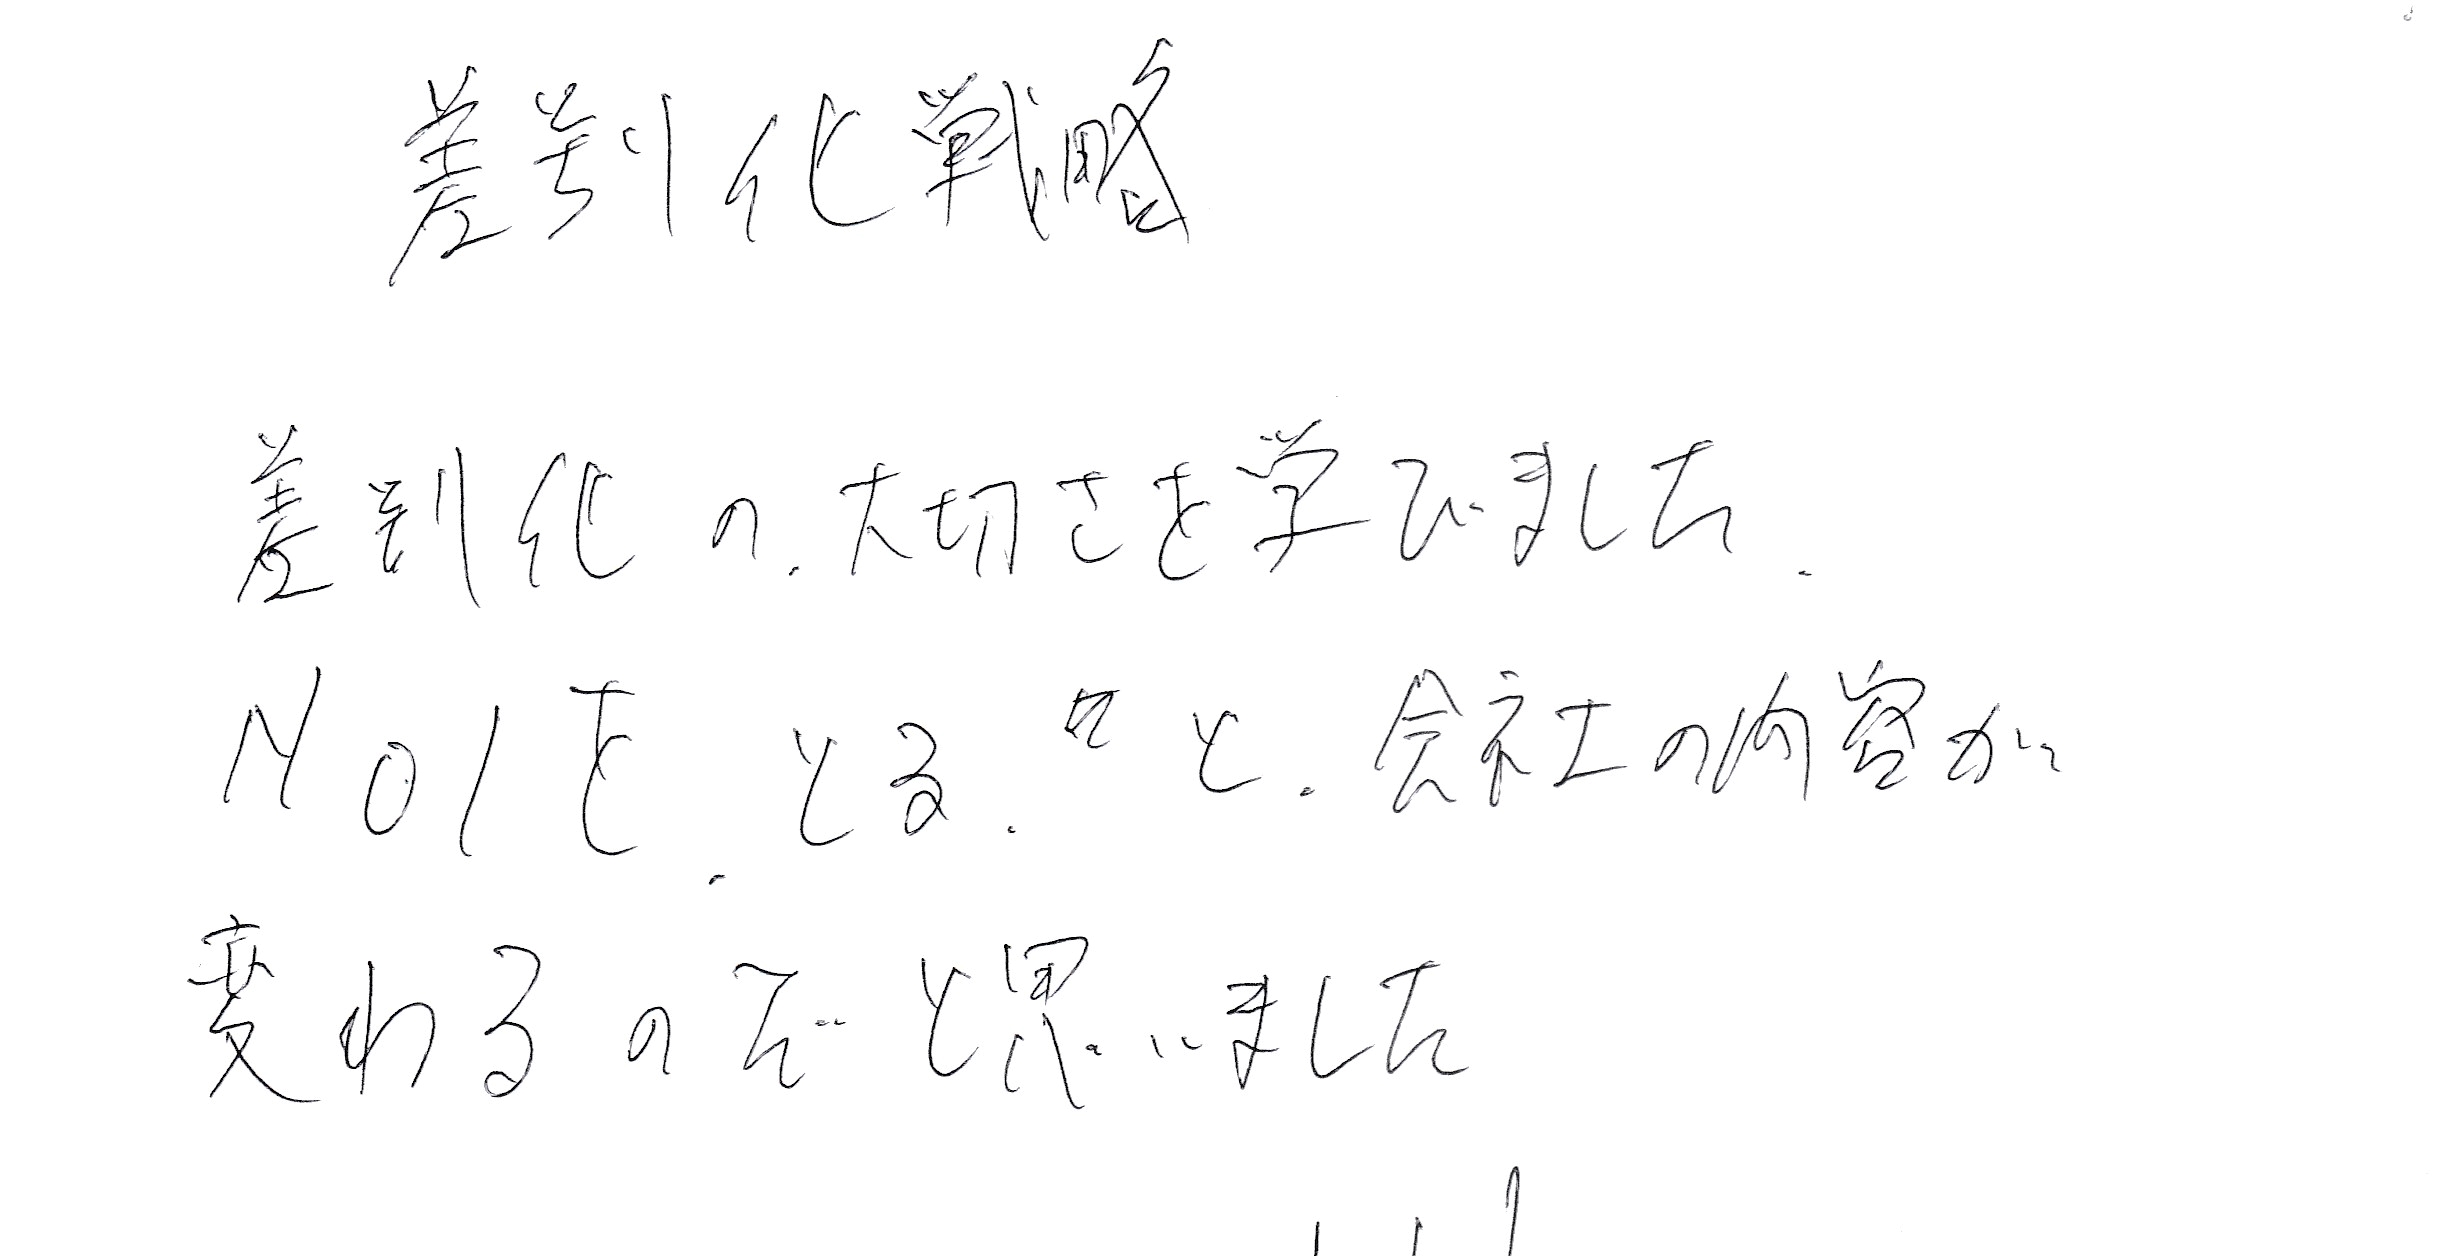 差別化戦略
差別化の大切さを学びました.
No1をとる.と.会社の内容が
変わるのだと思いました